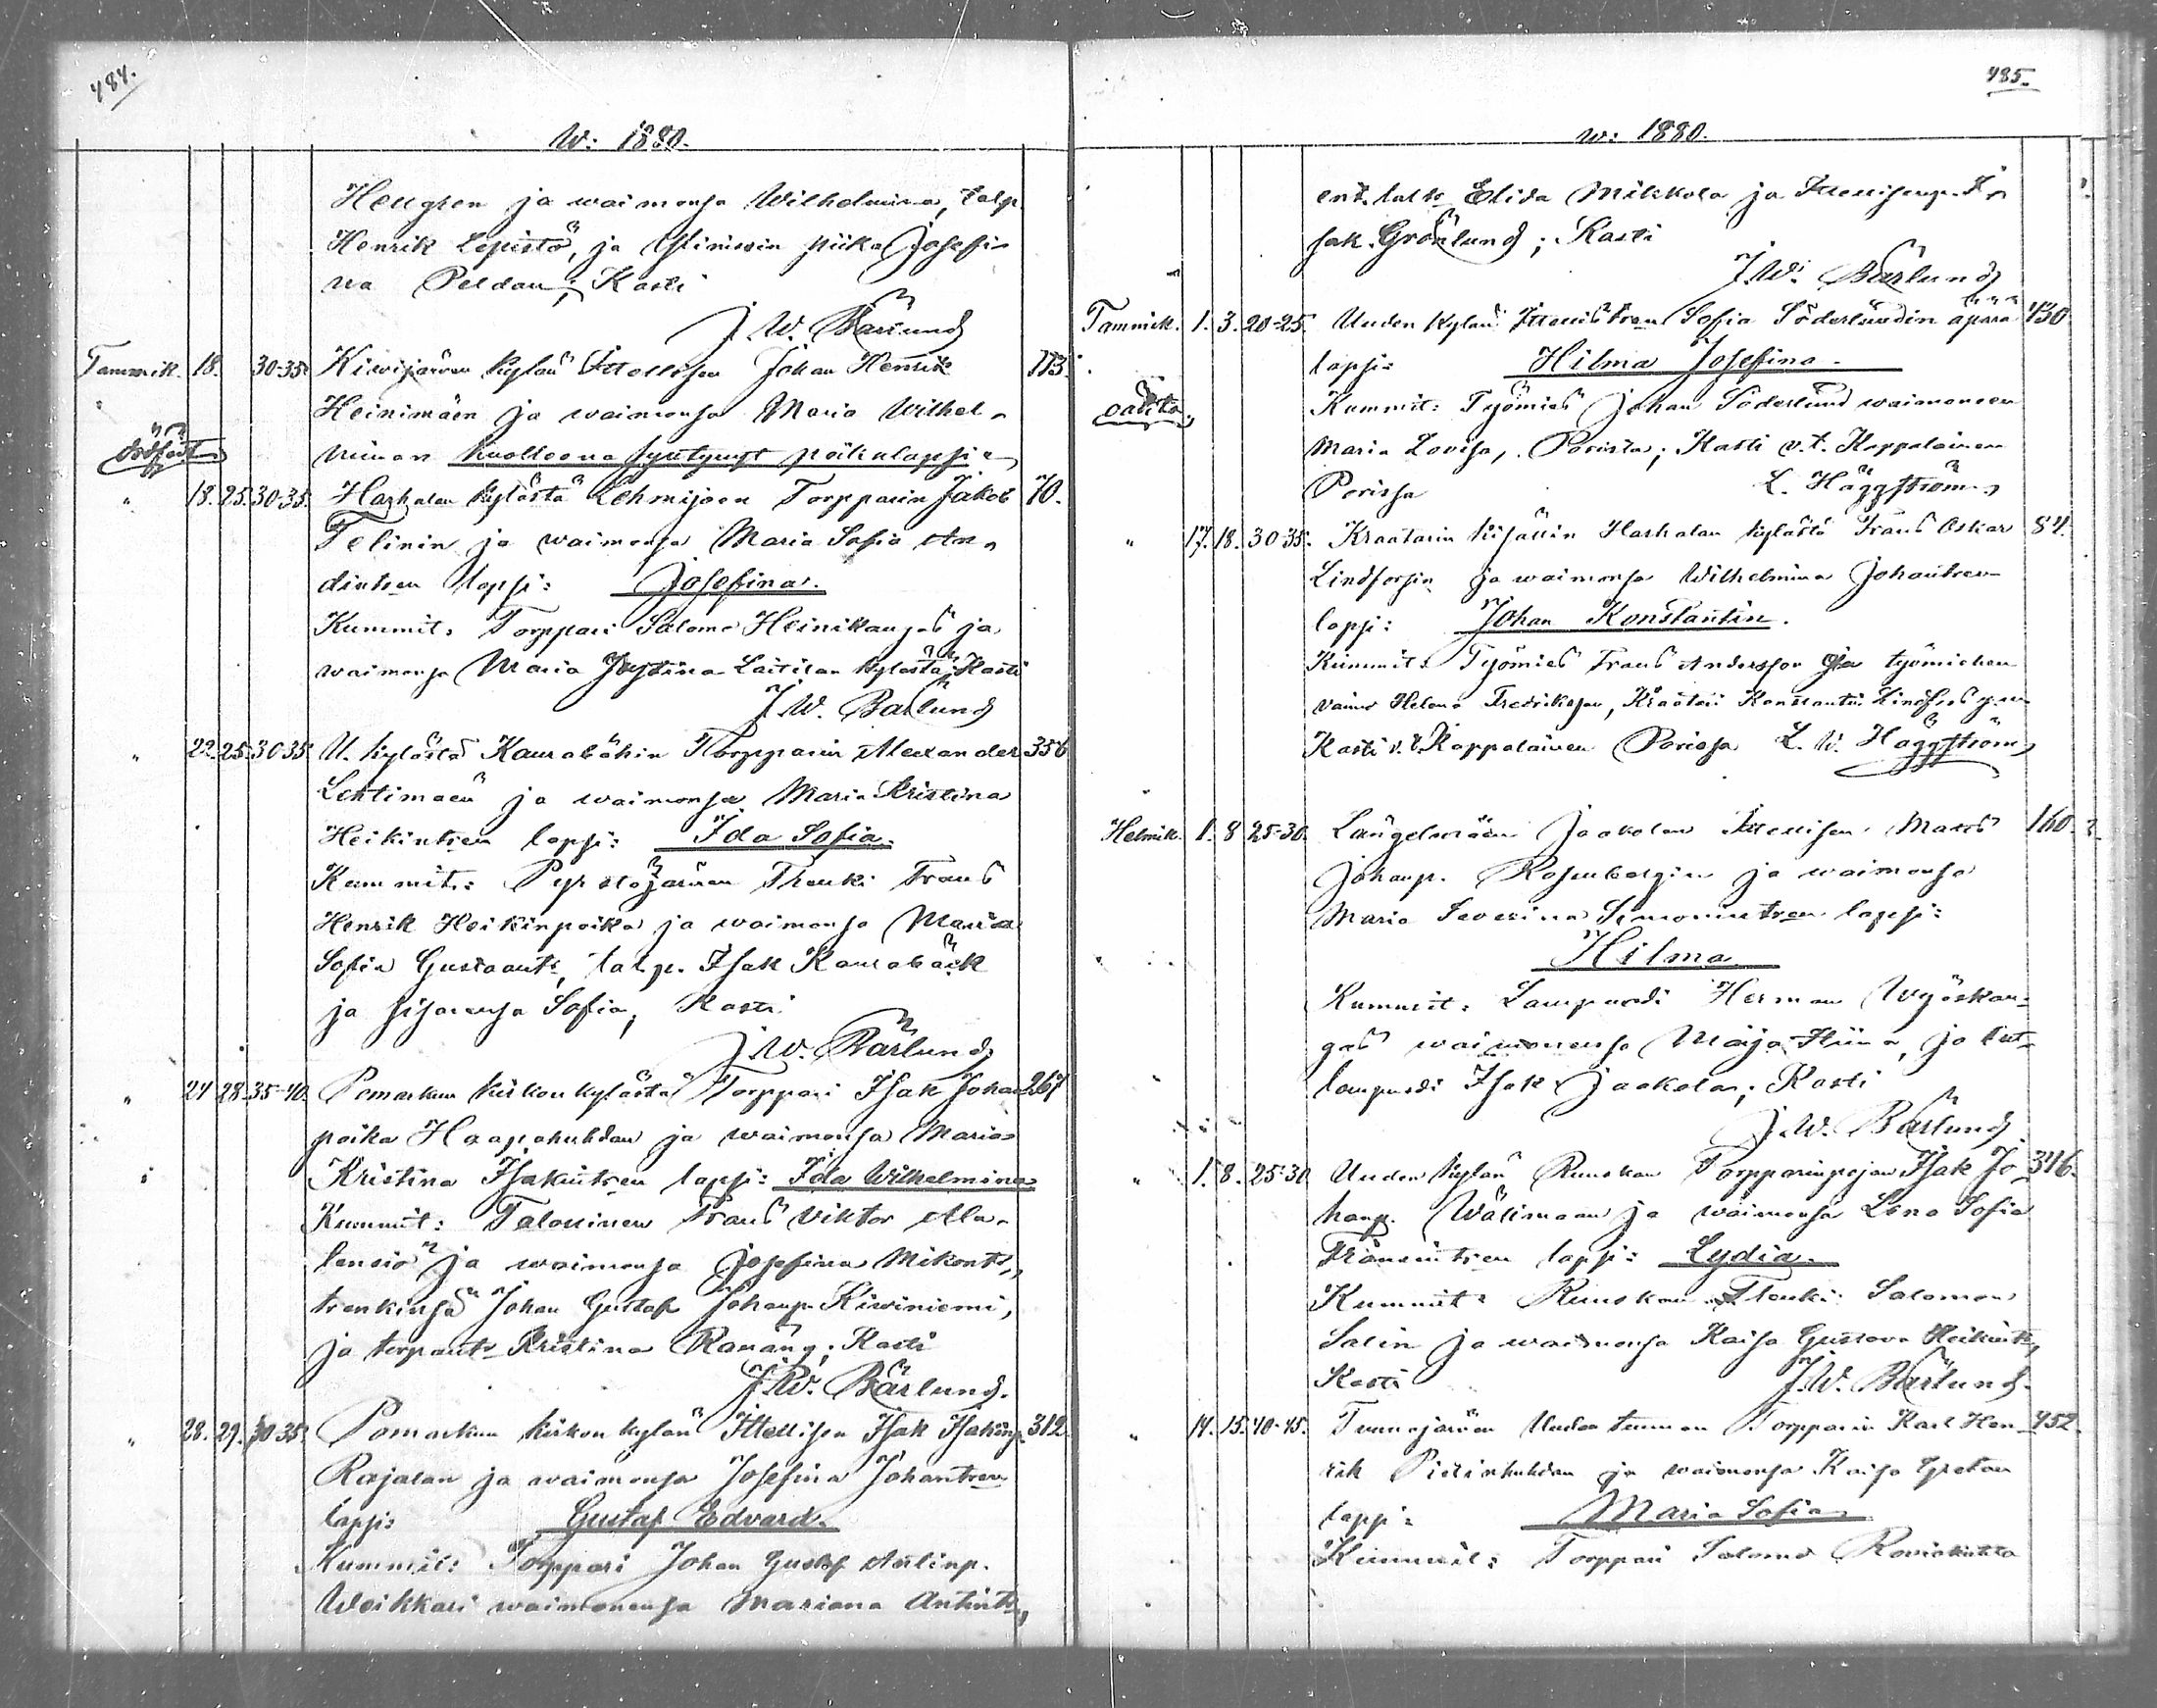 484.
W: 1880.
Hellgren ja waimonsa Wilhelmina, talp.
Henrik Lepistö, ja piika Josefi-
na Peldan; Kasti
J. W. Bärlund
Tammik. 18. 30-35 Kiwijärwen kylän Ittellisen Johan Henrik 113.
Heinimäen ja waimonsa Maria Wilhel-
minan kuolleena syntynyt poikalapsi
" 18. 25. 30-35. Harhalan kylästä Lehmijoen Torpparin Jakob 70.
Felinin ja waimonsa Maria Sofia An-
dintren lapsi: Josefina.
Kummit: Torppari Salomo Heinikangas ja
waimonsa Maria Justina Laitilan kylästä; Kasti
J. W. Bärlund
" 22. 25. 30-35 U. kylästä Kaurabäkin Torpparin Alexander 356
Lehtimäen ja waimonsa Maria Kristina
Heikintren lapsi: Ida Sofia.
Kummit: Pyrstöjärwen Trenki Frans
Henrik Heikinpoika ja waimonsa Maria
Sofia Gustaant., talp. Isak Kaurabäck
ja sisarensa Sofia; Kasti
J. W. Bärlund
" 24 28. 35-40. Pomarkun kirkon kylästä Torppari Isak Johan 267
poika Haapahuhdan ja waimonsa Maria
Kristina Isakintren lapsi: Ida Wilhelmina
Kummit: Talollinen Frans Viktor Ala-
lensiö ja waimonsa Josefina Mikont.,
trenkinsä Johan Gustaf Johanp. Kiwiniemi,
ja torpant. Kristina Ranäng; Kasti
J. W. Bärlund.
" 28. 29. 30-35. Pomarkun kirkon kylän Ittellisen Isak Isakinp. 312
Rajalan ja waimonsa Josefina Johantren
lapsi: Gustaf Edvard.
Kummit: Torppari Johan Gustaf p.
Weikkari waimonensa Mariana Antint.,
485.
w: 1880.
Elida Mikkola ja Ittellisenp. I-
sak Grönlund; Kasti
J. W. Bärlund
Tammik. 1. 3. 20-25. Uuden kylän Ittellistren Sofia Söderlundin äpärä 430
lapsi: Hilma Josefina.
Kummit: Työmies Johan Söderlund waimoneen
Maria Lovisa, Porista; Kasti v.t. Kappalainen
Porissa L. Häggström
" 17. 18. 30-35. Kraatarin kisällin Harhalan kylästä Frans Oskar 84.
Lindforsin ja waimonsa Wilhelmina Johantren
lapsi: Johan Konstantin.
Kummit: Työmies Frans Andersson ja työmiehen
vaimo Helena Fredriksson, Kraatari Konstantin Lindfors
Kasti v.t. Kappalainen Porissa L. W. Häggström
Helmik. 1. 8 25-30. Längelmäen Jaakolan Ittellisen Matts 160.
Johanp. Rosenbergin ja waimonsa
Maria Severina Simonintren lapsi:
Hilma
Kummit: Lampuodi Herman Wyöskan-
gas waimonensa Maija Stiina, ja
lampuodi Isak Jaakola; Kasti
J. W. Bärlund
" 1. 8. 25-30 Uuden kylän Ruuskan Torpparinpojan Isak Jo- 346.
hanp. Wälimaan ja waimonsa Lena Sofia
Fransintren lapsi: Lydia.
Kummit: Ruuskan Trenki Salomon
Salin ja waimonsa Kaisa Gustava Heikint.,
Kasti J. W. Bärlund.
" 14. 15. 40-45. Tuunajärwen Uuden tuunan Torpparin Karl Hen- 452.
rik ja waimonsa Kaisa Gretan
lapsi: Maria Sofia
Kummit: Torppari Salomo